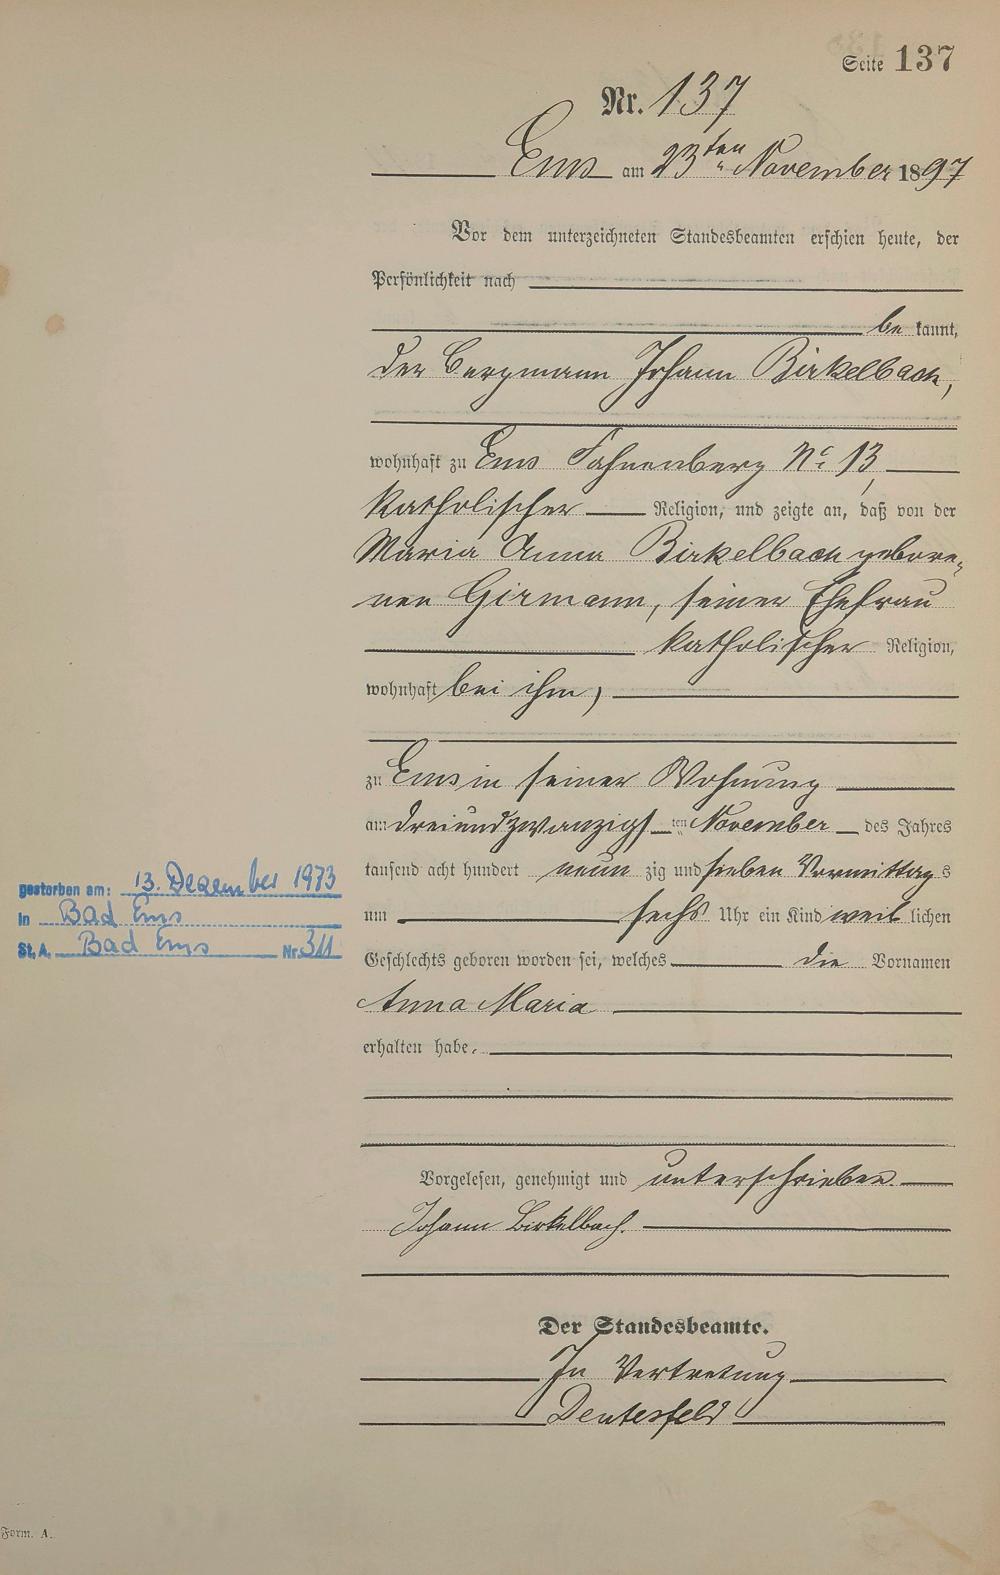 Seite 137
Nr. 137
Ems am 23ten November 1897
Vor dem unterzeichneten Standesbeamten erschien heute, der
Persönlichkeit nach
be kannt,
der Bergmann Johann Birkelbach,
wohnhaft zu Ems Fahnenberg No. 13,
katholischer Religion, und zeigte an, daß von der
Maria Anna Birkelbach gebore-
nen Girmann, seiner Ehefrau
katholischer Religion,
wohnhaft bei ihm,
zu Ems in seiner Wohnung
am dreiundzwanzigsten November des Jahres
tausend acht hundert neun zig und sieben Vormittags
um sechs Uhr ein Kind weiblichen
Geschlechts geboren worden sei, welches die Vornamen
Anna Maria
erhalten habe.
Vorgelesen, genehmigt und unterschrieben.
Johann Birkelbach.
Der Standesbeamte.
In Vertretung
gestorben am: 13. Dezember 1973
in Bad Ems
St. A. Bad Ems Nr. 311
Form. A.